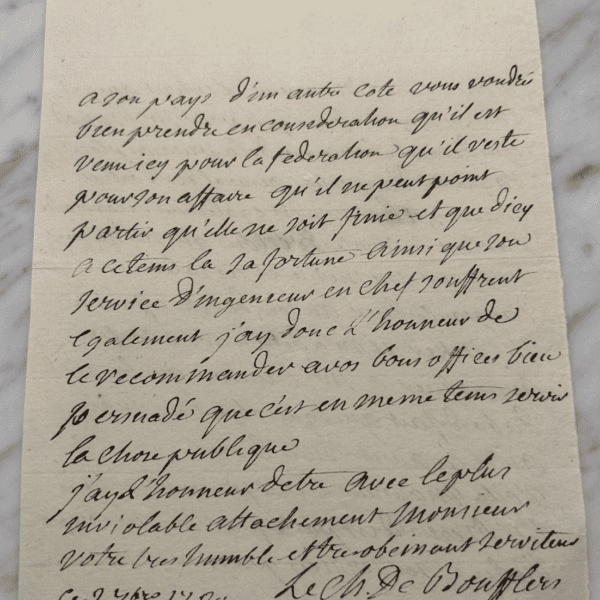 a son pays d'un autre coté vous voudrés
bien prendre en consideration qu'il est
venu icy pour la federation qu'il reste
pour son affaire qu'il ne peut point
partir qu'elle ne soit finie et que d'icy
a ce tems la sa fortune ainsi que son
service d'ingenieur en chef souffrent
egalement j'ay donc l'honneur de
le recommander a vos bons offices bien
persuadé que c'est en meme tems servir
la chose publique
j'ay l'honneur detre avec le plus
inviolable attachement Monsieur
votre tres humble et tres obeissant serviteur
Le Ch. De Boufflers